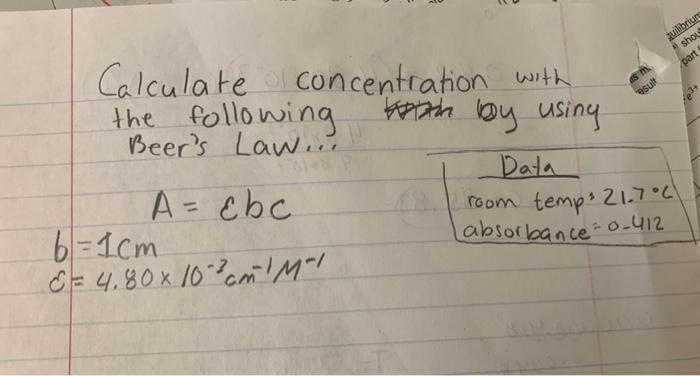 Calculate concentration with
the following by using
Beer's Law...
Data
room temp: 21.7°C
absorbance = 0.412
A = εbc
b = 1cm
ε = 4.80 x 10⁻³ cm⁻¹ M⁻¹
uilibrium
shou
part
esult